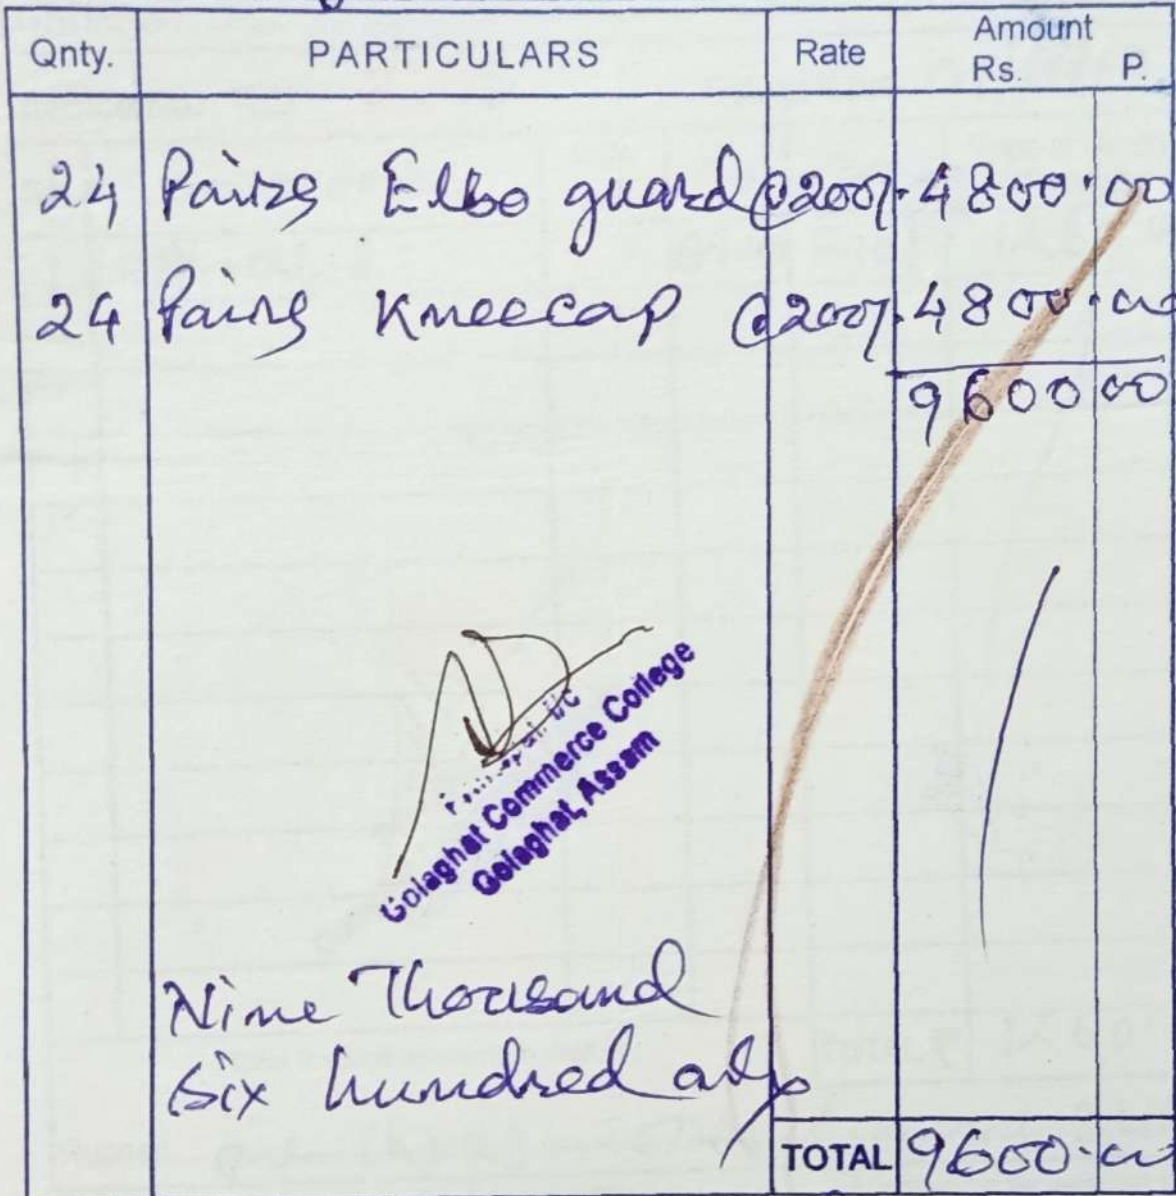 Qnty. PARTICULARS Rate Amount Rs. P.
24 Pairs Elbo guard @200/- 4800.00
24 Pairs Kneecap @200/- 4800.00
9600 00
I/C
Golaghat Commerce College
Golaghat, Assam
Nine Thousand
six hundred only
TOTAL 9600.00